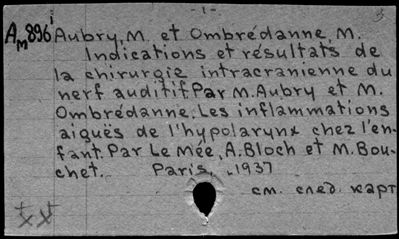 - 1 -
Am896i Aubry, M. et Ombrédanne, M.
Indications et résultats de
la chirurgie intracranienne du
nerf auditif. Par M. Aubry et M.
Ombrédanne. Les inflammations
aiguës de l'hypolarynx chez l'en-
fant. Par Le Mée, A. Bloch et M. Bou-
chet. Paris, 1937
см. след. карт